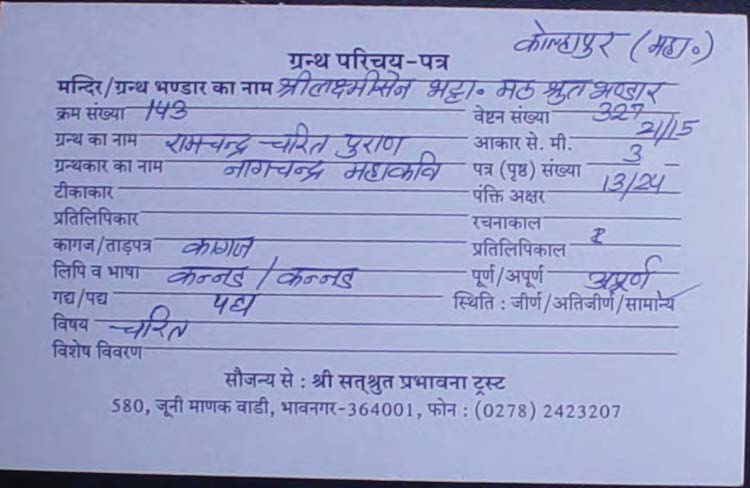 कोल्हापुर (महा०)
ग्रन्थ परिचय-पत्र
मन्दिर/ग्रन्थ भण्डार का नाम श्रीलक्ष्मीसेन भट्टा० मठ श्रुत भण्डार
क्रम संख्या 143 वेष्टन संख्या 327
ग्रन्थ का नाम रामचन्द्र चरित पुराण आकार से. मी. 21/15
ग्रन्थकार का नाम नागचन्द्र महाकवि पत्र (पृष्ठ) संख्या 3
टीकाकार पंक्ति अक्षर 13/24
प्रतिलिपिकार रचनाकाल
कागज/ताड़पत्र कागज प्रतिलिपिकाल
लिपि व भाषा कन्नड / कन्नड पूर्ण/अपूर्ण अपूर्ण
गद्य/पद्य पद्य स्थिति : जीर्ण/अतिजीर्ण/सामान्य
विषय चरित
विशेष विवरण
सौजन्य से : श्री सत्श्रुत प्रभावना ट्रस्ट
580, जूनी माणक वाडी, भावनगर-364001, फोन : (0278) 2423207